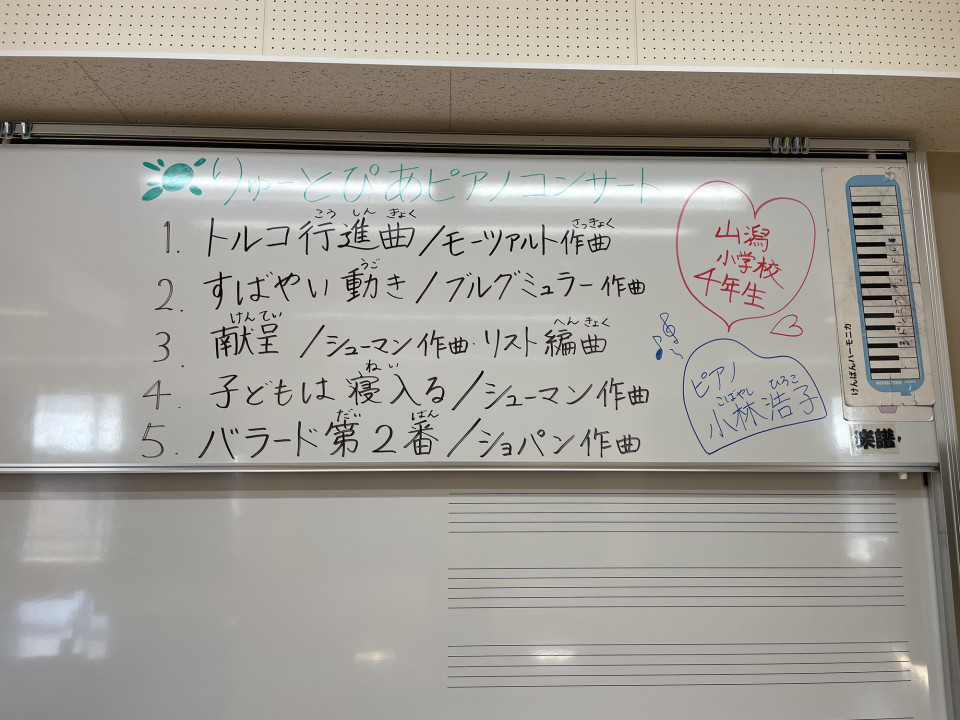 りゅーとぴあピアノコンサート
1. トルコ行進曲/モーツァルト作曲
こうしんきょく
さっきょく
2. すばやい動き/ブルグミュラー作曲
うご
3. 献呈/シューマン作曲・リスト編曲
けんてい
へんきょく
4. 子どもは寝入る/シューマン作曲
ねい
5. バラード第2番/ショパン作曲
だい
ばん
山潟
小学校
4年生
ピアノ
こばやし ひろこ
小林浩子
けんばんハーモニカ
楽譜